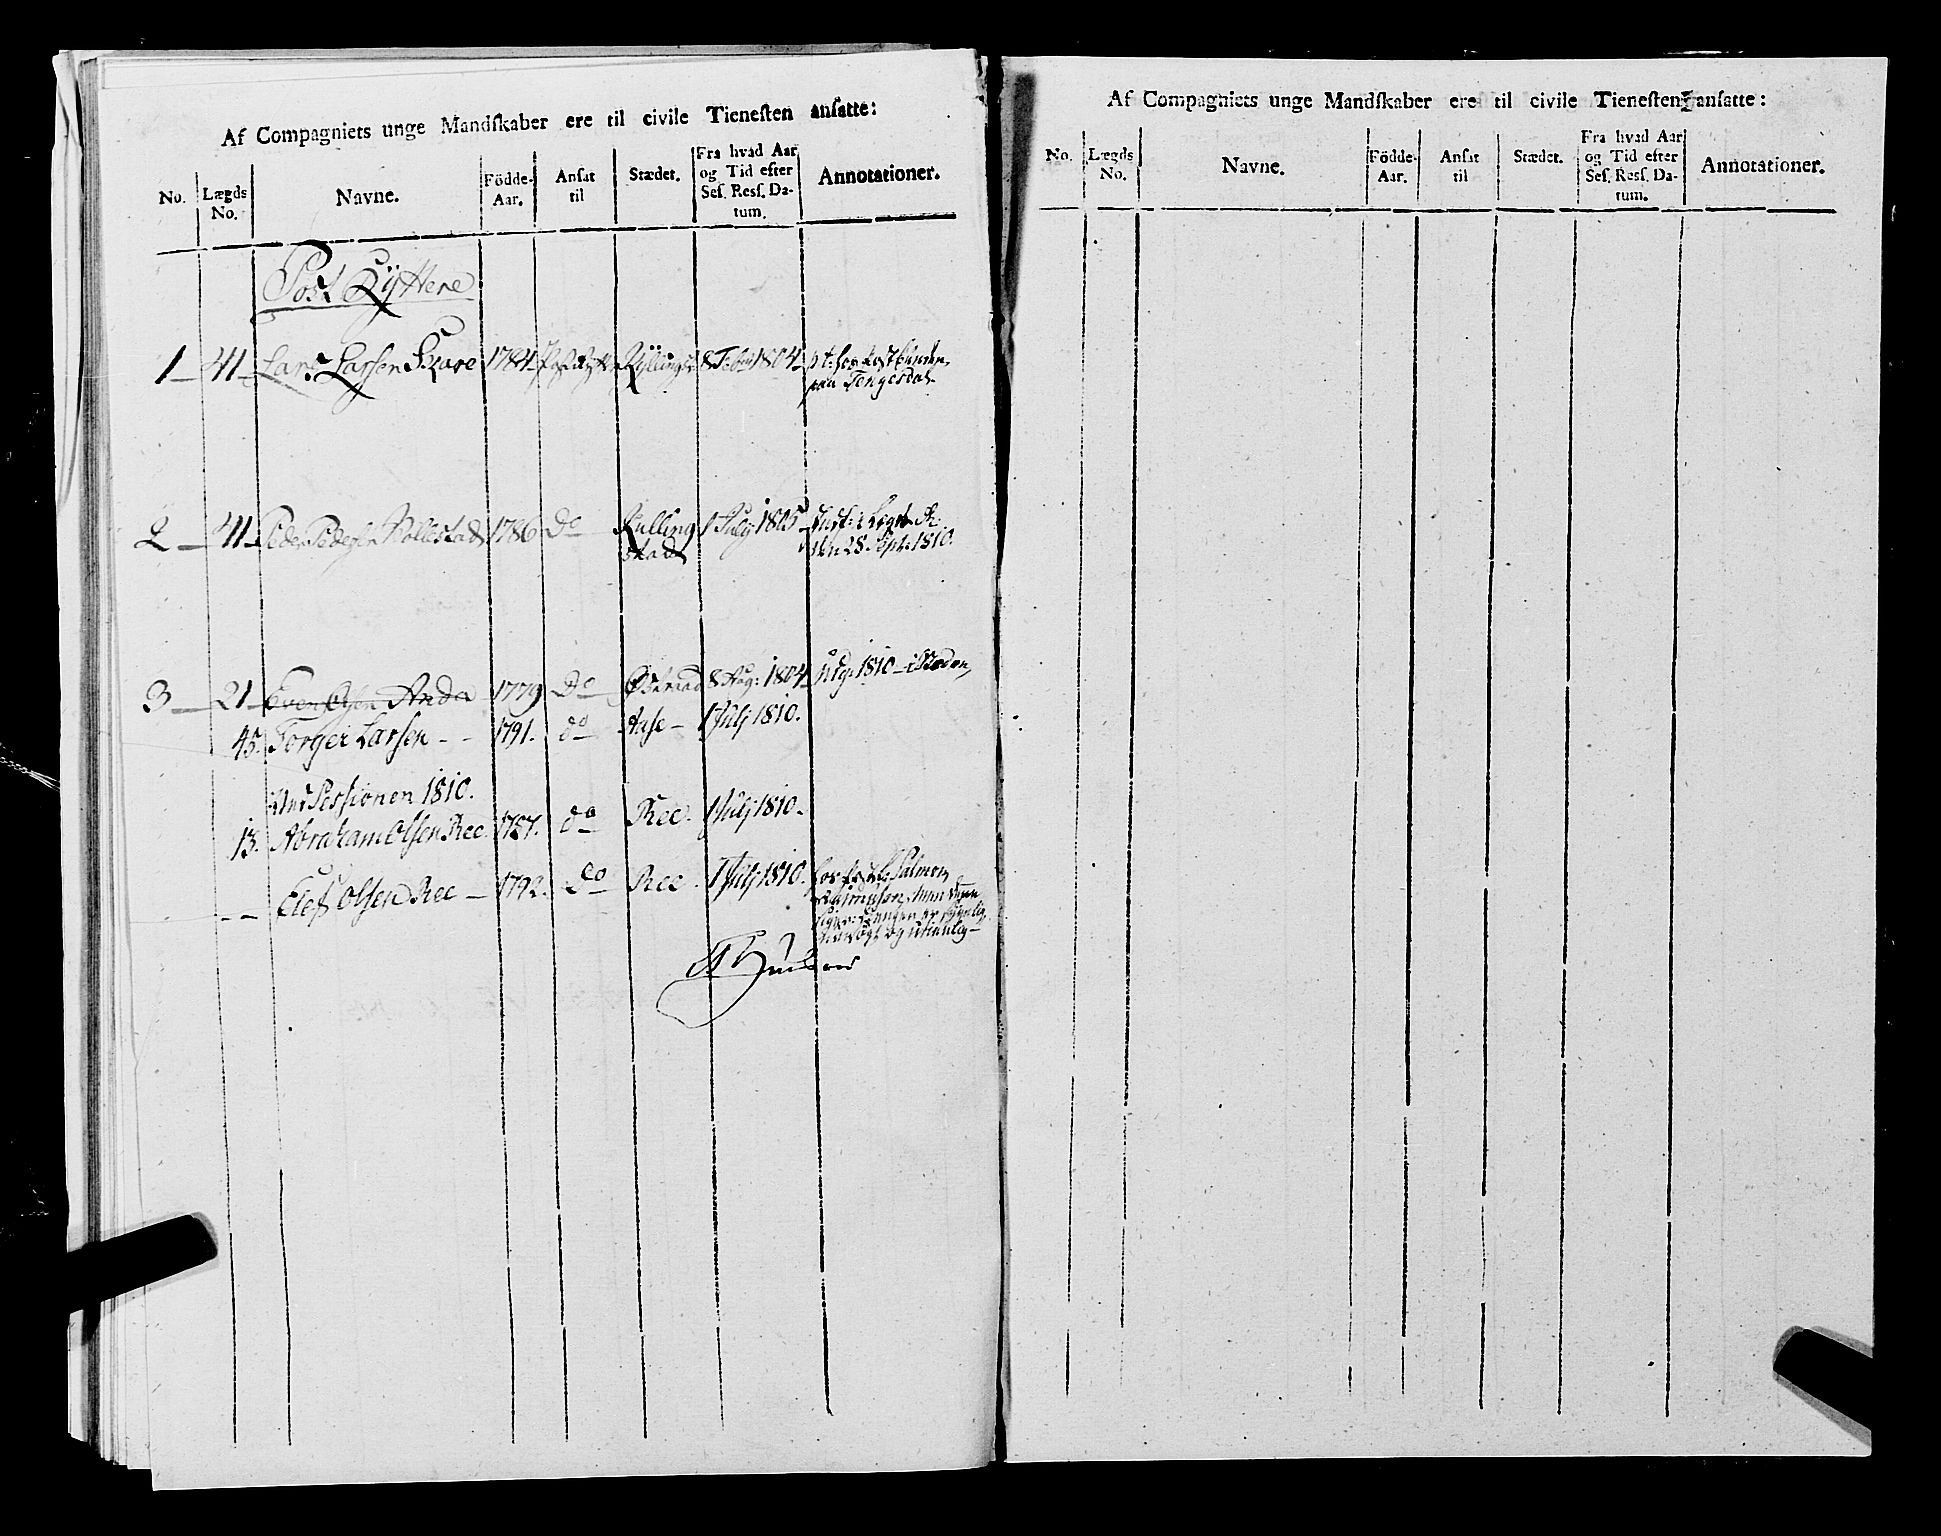 Af Compagniets unge Mandſkaber ere til civile Tieneſten anſatte:
No. Lægds No. Navne. Födde-Aar. Anſat til Stædet. Fra hvad Aar og Tid efter Seſ. Reſſ. Da-tum. Annotationer.
Post Rÿttere
1 41 Lars Larsen Svare 1784 Rÿllingst 8 Febr 1804
paa Tengesdal
2 41 Peder Pedersen Rollestad 1786 Do Rulling 1 Julÿ 1805
stad den 28 Sept: 1810.
3 21 Even Olsen Anda 1779 Do Østraad 8 Aug: 1804 Udg: 1810 - i Steden,
45. Torger Larsen - - 1791. do Aase - 1 Julj 1810.
Ved Sessionen 1810.
13. Abraham Olsen Ree 1787. do Ree. 1 Julj 1810.
- - Elef Olsen Ree - 1792. Do Ree. 1 Julj 1810. Salmon
og utienlig -
Af Compagniets unge Mandſkaber ere til civile Tieneſten anſatte:
No. Lægds No. Navne. Födde-Aar. Anſat til Stædet. Fra hvad Aar og Tid efter Seſ. Reſſ. Da-tum. Annotationer.